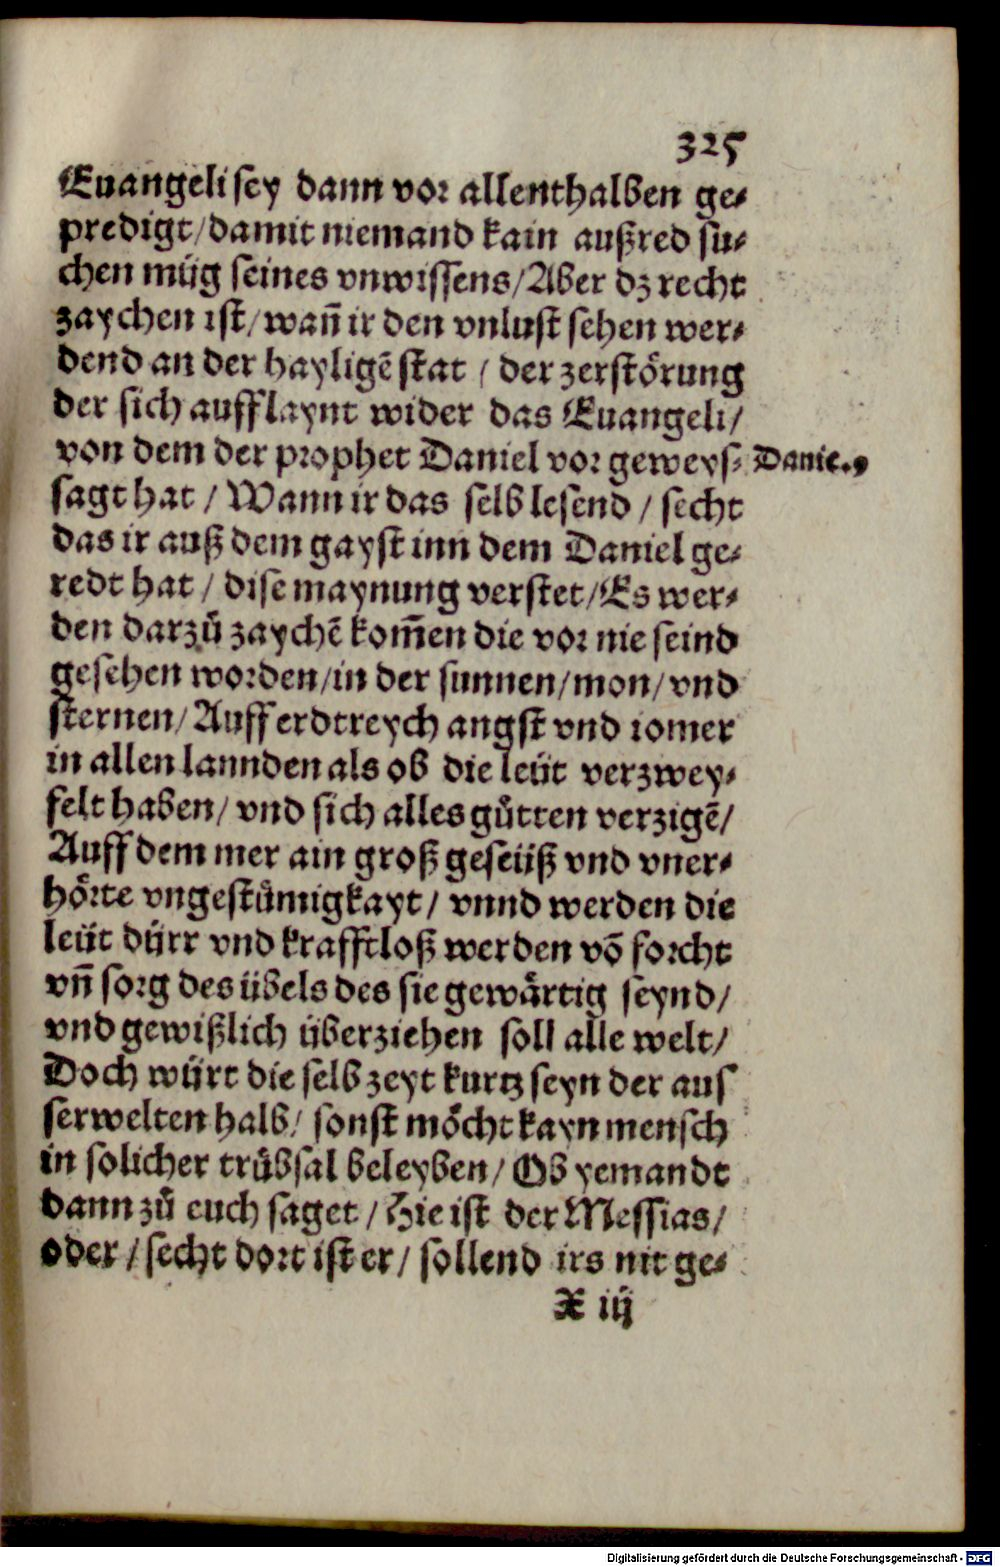 325
Euangeli sey dann vor allenthalben ge⸗
predigt/damit niemand kain außred su⸗
chen müg seines vnwissens/Aber dz recht
zaychen ist/wañ ir den vnlust sehen wer⸗
dend an der hayligē stat / der zerstörung
der sich aufflaynt wider das Euangeli/
von dem der prophet Daniel vor geweys⸗ Danie.9
sagt hat / Wann ir das selb lesend / secht
das ir auß dem gayst inn dem Daniel ge⸗
redt hat / dise maynung verstet/Es wer⸗
den darzů zaychē kom̄en die vor nie seind
gesehen worden/in der sunnen/mon/vnd
sternen/Auff erdtreych angst vnd iomer
in allen lannden als ob die leüt verzwey⸗
felt haben/ vnd sich alles gůtten verzigē/
Auff dem mer ain groß geseüß vnd vner⸗
hörte vngestůmigkayt/ vnnd werden die
leüt dürr vnd krafftloß werden vō forcht
vn̄ sorg des übels des sie gewärtig seynd/
vnd gewißlich überziehen soll alle welt/
Doch würt die selb zeyt kurtz seyn der aus
serwelten halb/ sonst möcht kayn mensch
in solicher trübsal beleyben/ Ob yemandt
dann zů euch saget / Hie ist der Messias/
oder / secht dort ist er/ sollend irs nit ge⸗
X iij
Digitalisierung gefördert durch die Deutsche Forschungsgemeinschaft - DFG